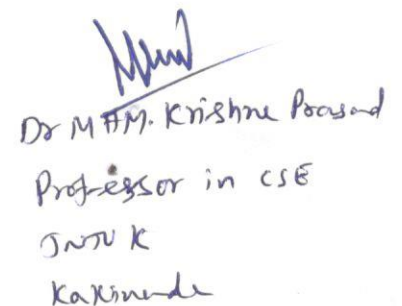 Dr MHM. Krishna Prasad
Professor in CSE
JNTU K
Kakinada